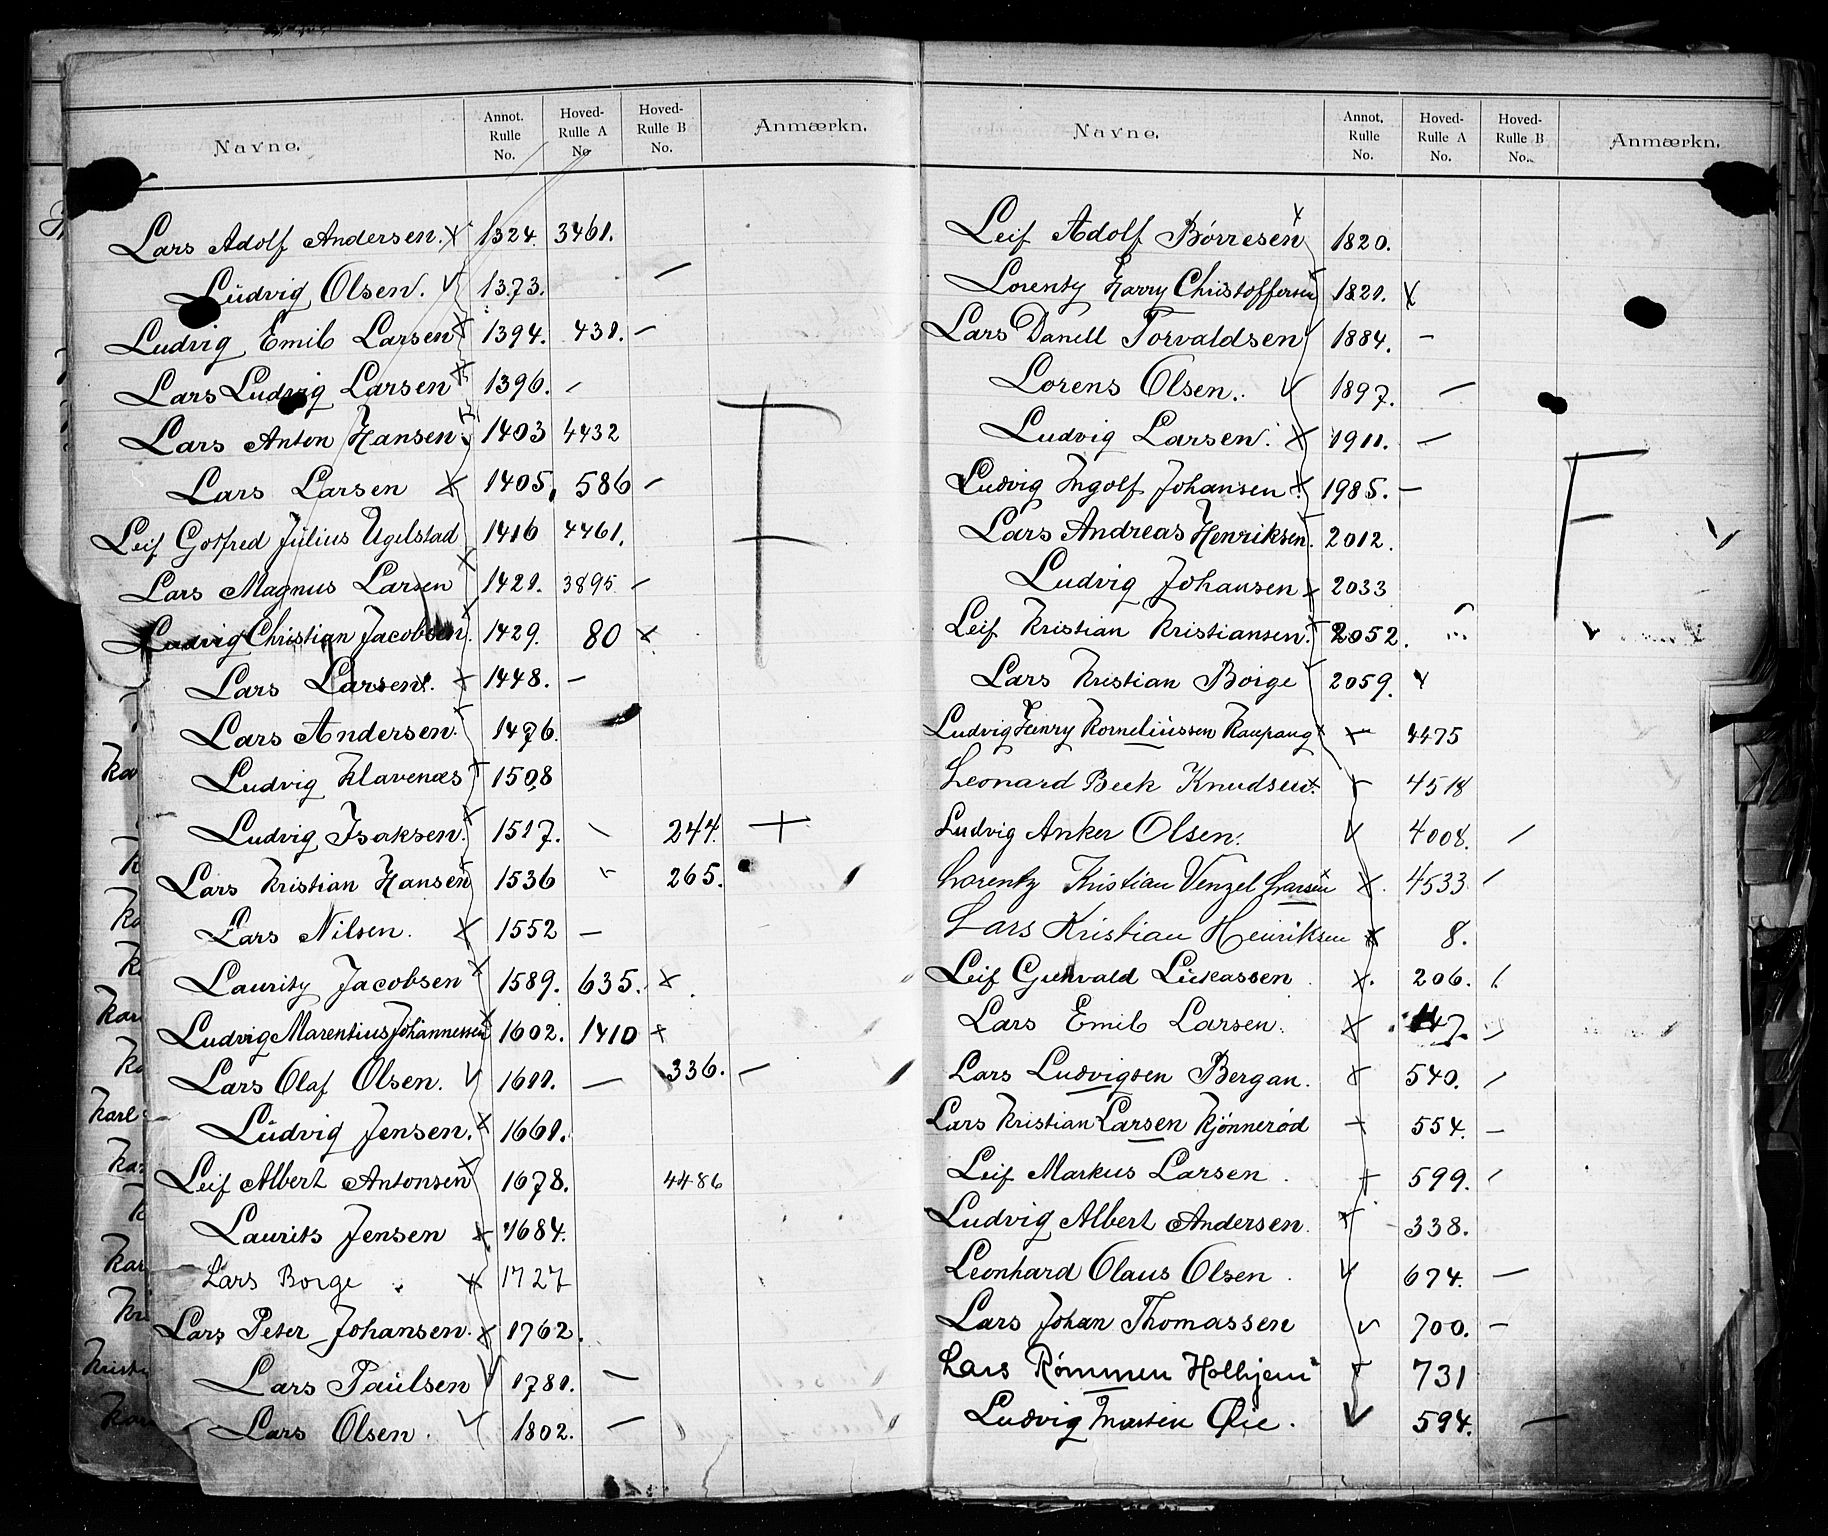 Navne. Annot. Rulle No. Hoved-Rulle A No. Hoved-Rulle B No. Anmærkn.
Lars Adolf Andersen. x 1324. 3461.
Ludvig Olsen. v 1373. —
Ludvig Emil Larsen x 1394. 431. —
Lars Ludvig Larsen x 1396. —
Lars Anton Hansen. 1403 4432
Lars Larsen x 1405. 586 —
Leif Gotfred Julius Ugelstad 1416 4461.
Lars Magnus Larsen x 1421. 3895. —
Ludvig Christian Jacobsen. 1429. 80 x
Lars Larsen. x 1448. —
Lars Andersen. 1476.
Ludvig Klavenæs 1508
Ludvig Isaksen. x 1517. — 244. +
Lars Kristian Hansen 1536 — 265.
Lars Nilsen. x 1552 —
Lauritz Jacobsen x 1589. 635. x
Ludvig Marentius Johannessen x 1602. 1410 x
Lars Olaf Olsen. v 1611. — 336. —
Ludvig Jensen. x 1661.
Leif Albert Antonsen x 1678. 4486
Laurits Jensen x 1684.
Lars Borge x 1727
Lars Peter Johansen. x 1762.
Lars Paulsen v 1781. —
Lars Olsen. v 1802. —
F
Navne. Annot. Rulle No. Hoved-Rulle A No. Hoved-Rulle B No. Anmærkn.
Leif Adolf Børresen x 1820.
Lorentz Harry Christoffersen 1821. x
Lars Danell Torvaldsen v 1884. —
Lorens Olsen. v 1897. —
Ludvig Larsen. x 1911. —
Ludvig Ingolf Johansen. x 1985. —
Lars Andreas Henriksen. 2012.
Ludvig Johansen x 2033
Leif Kristian Kristiansen. x 2052.
Lars Kristian Borge v 2059. x
Ludvig Henry Korneliussen Kaupang x 4475
Leonard Beck Knudsen. 4518
Ludvig Anker Olsen. v 4008. /
Lorentz Kristian Venzel Larsen x. 4533. /
Lars Kristian Henriksen x 8.
Leif Gunvald Lucassen x. 206. /.
Lars Emil Larsen. x 447.
Lars Ludvigsen Bergan. x 540. /
Lars Kristian Larsen Kjønnerød x 554. —
Leif Markus Larsen. x 599. /
Ludvig Albert Andersen. x 338.
Leonhard Olaus Olsen. v 674. —
Lars Johan Thomassen v 700. —
Lars Rømmen Holhjem 731
Ludvig Martin Øie. v 594. —
F